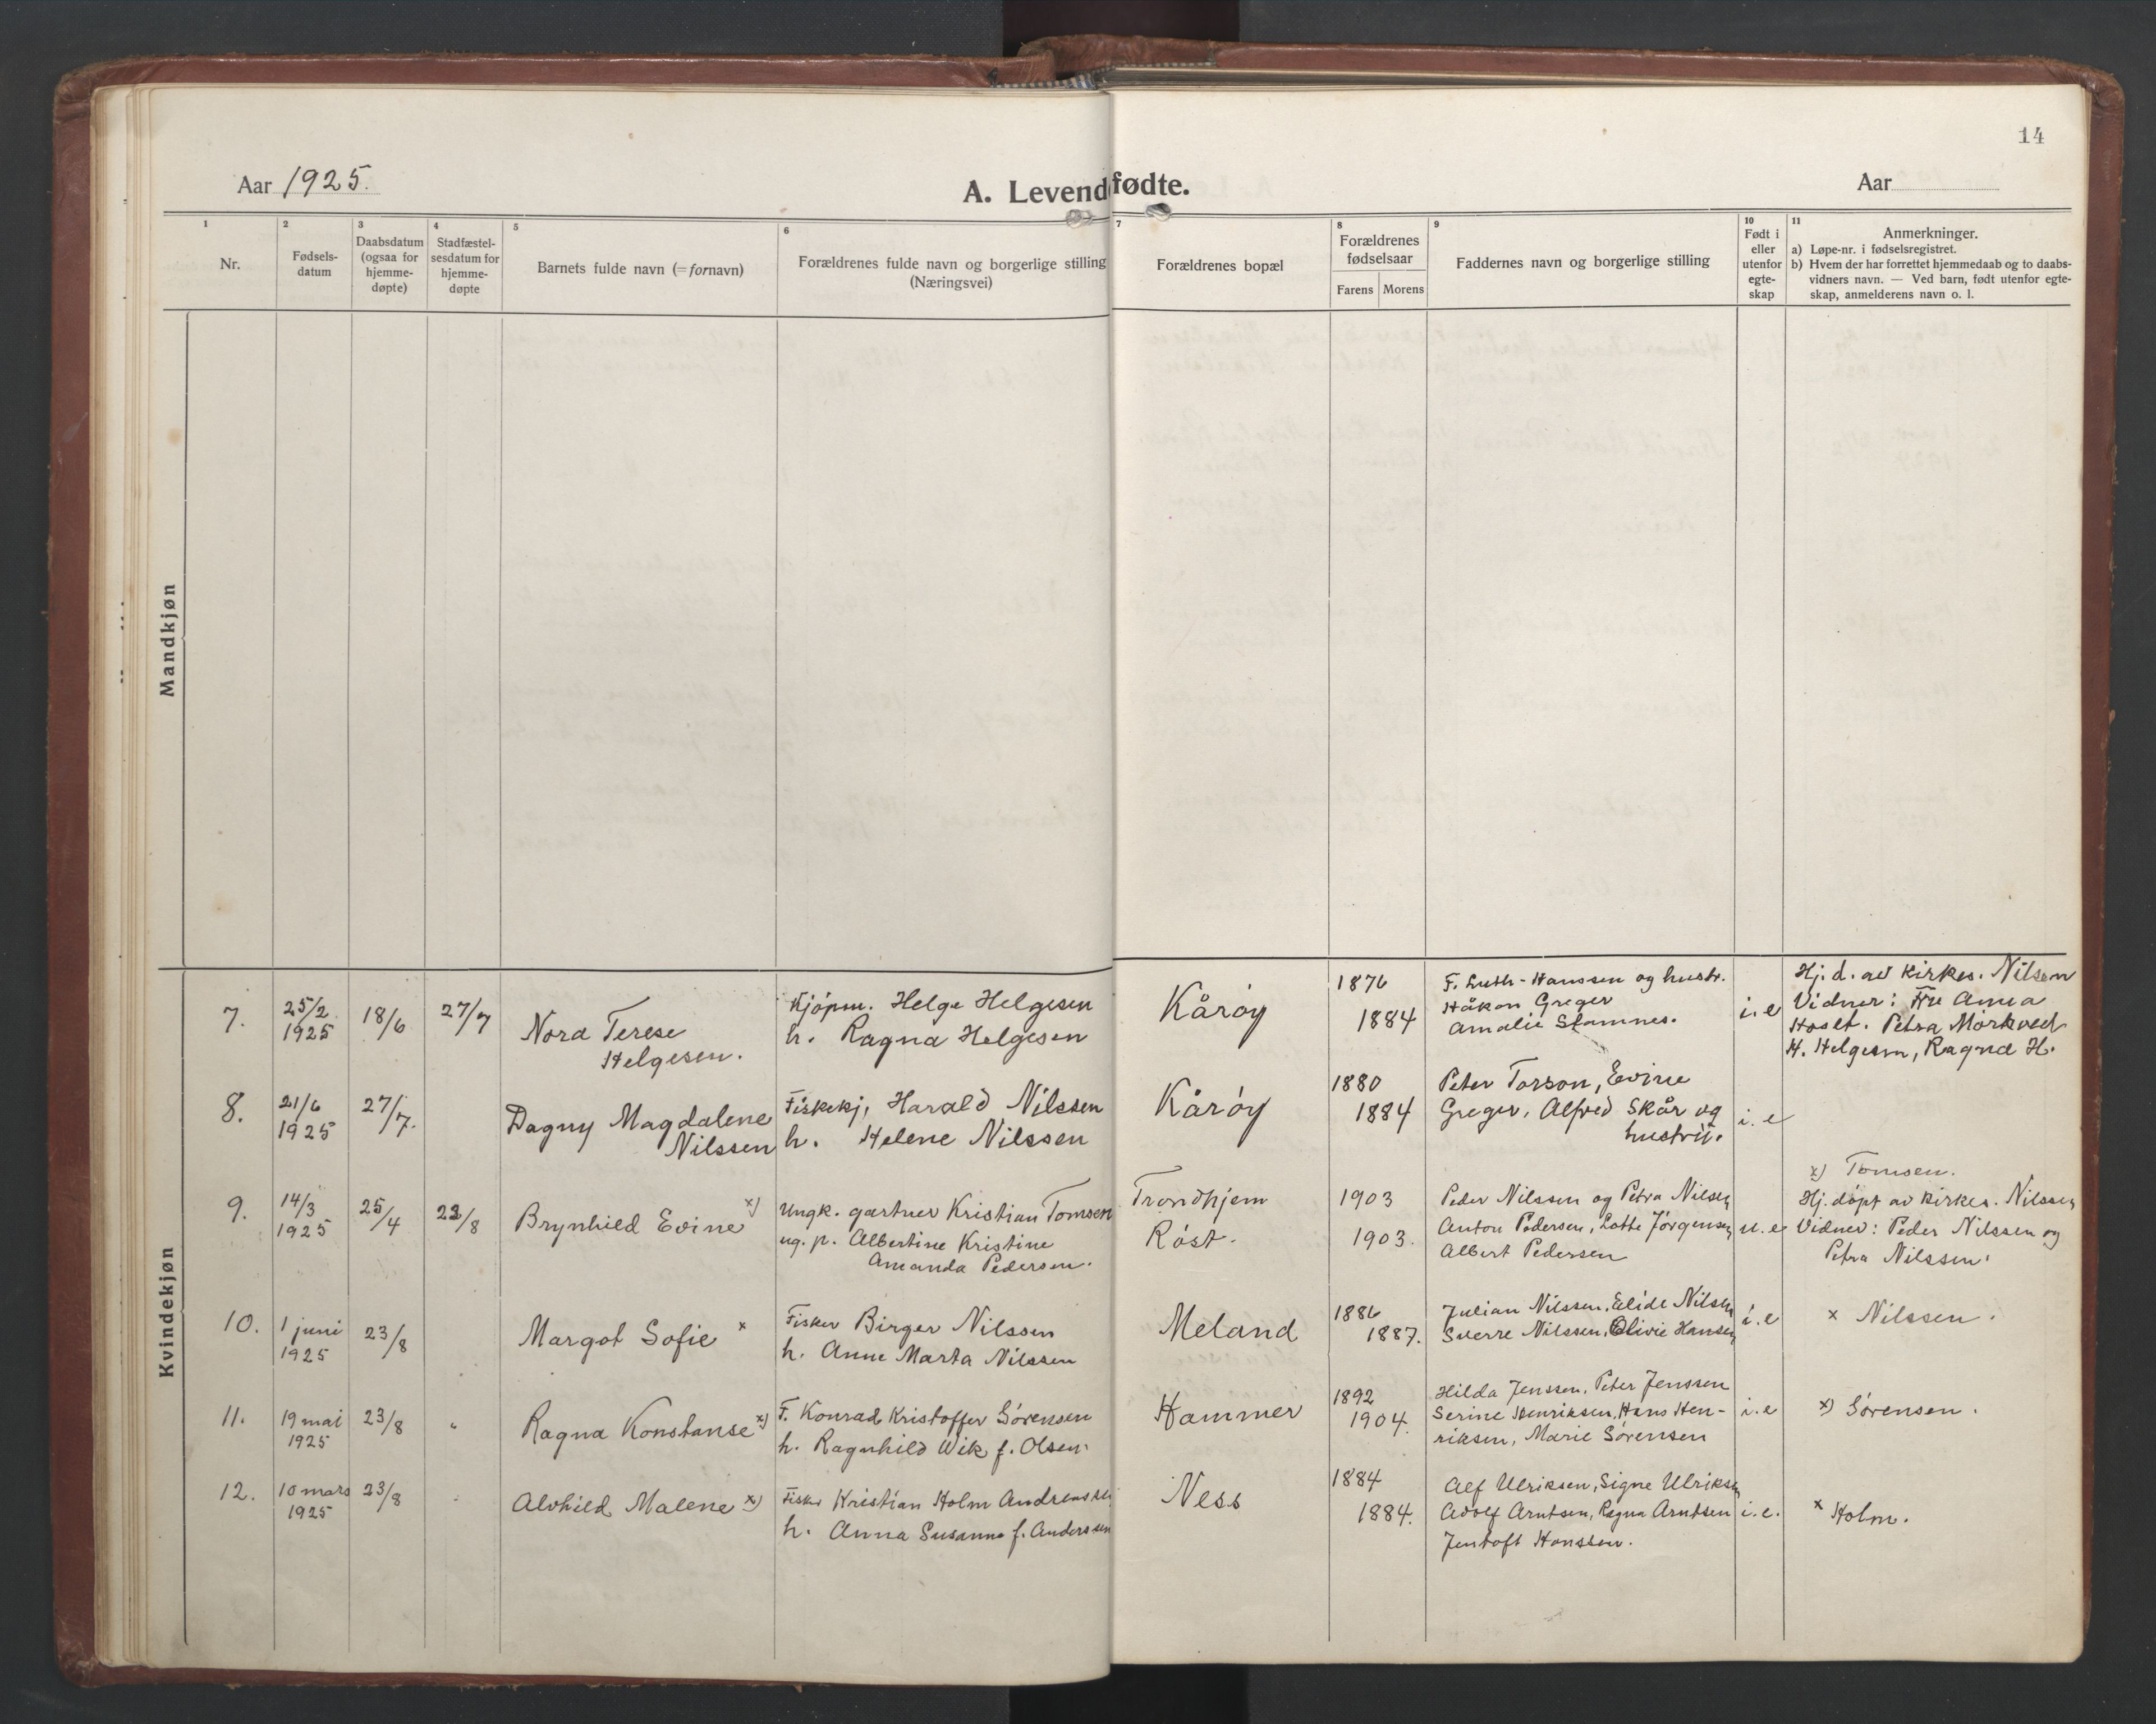 14
Aar 1925.
A. Levendefødte.
Aar
1 2 3 4 5 6 7 8 9 10 11
Nr.
Fødsels-
datum
Daabsdatum
(ogsaa for
hjemme-
døpte)
Stadfæstel-
sesdatum for
hjemme-
døpte
Barnets fulde navn (= fornavn)
Forældrenes fulde navn og borgerlige stilling
(Næringsvei)
Forældrenes bopæl
Forældrenes
fødselsaar
Farens Morens
Faddernes navn og borgerlige stilling
Født i
eller
utenfor
egte-
skap
Anmerkninger.
a) Løpe-nr. i fødselsregistret.
b) Hvem der har forrettet hjemmedaab og to daabs-
vidners navn. — Ved barn, født utenfor egte-
skap, anmelderens navn o. l.
Mandkjøn
Kvindekjøn
7.
25/2
1925
18/6
27/7
Nora Terese
Helgesen.
Kjöpm. Helge Helgesen
h. Ragna Helgesen
Kåröy
1876
1884
F. Luth-Hanssen og hustr.
Håkon Greger
Amalie Stamnes.
i. e
Hj. d. av kirkes. Nilsen
Vidner: Fre Anna
Hoset. Petra Mörkved
H. Helgesen, Ragna H.
8.
21/6
1925
27/7.
Dagny Magdalene
Nilssen
Fiskekj, Harald Nilssen
h. Helene Nilssen
Kåröy
1880
1884
Peter Torson, Evine
Greger, Alfred Skår og
hustru.
i. e
9.
14/3
1925
25/4
23/8
Brynhild Evine x)
Ungk. gartner Kristian Tomsen
ug. p. Albertine Kristine
Amanda Pedersen.
Trondhjem
Röst.
1903
1903.
Peder Nilssen og Petra Nilsen
Anton Pedersen, Lotte Jörgensen
Albert Pedersen
u. e
x) Tomsen.
Hj. döpt av kirkes. Nilssen
Vidner: Peder Nilssen og
Petra Nilssen.
10.
1 juni
1925
23/8
Margot Sofie x
Fisker Birger Nilssen
h. Anne Marta Nilssen
Meland
1886
1887.
Julian Nilssen, Elide Nilsen
Sverre Nilssen, Olivie Hansen
i. e
x Nilssen.
11.
19 mai
1925
23/8
"
Ragna Konstanse x)
F. Konrad Kristoffer Sörensen
h. Ragnhild Wik f. Olsen.
Hammer
1892
1904.
Hilda Jenssen, Peter Jenssen
Serine Henriksen, Hans Hen-
riksen, Marie Sörensen
i. e
x) Sörensen.
12.
10 mars
1925
23/8
Alvhild Malene x)
Fisker Kristian Holm Andreassen
h. Anna Susanna f. Anderssen
Ness
1884
1884.
Alf Ulriksen, Signe Ulriksen
Adolf Arntsen, Ragna Arntsen
Jentoft Hanssen.
i. e.
x Holm.